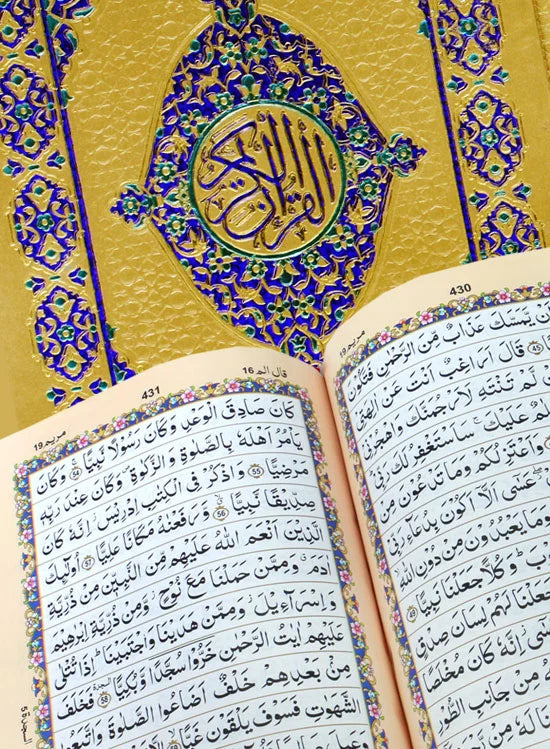 القرآن الكريم
430
مريم 19
ن يمسك عذاب من الرحمن فتكون
45 قال اراغب انت عن الهتي
لم تنته لارجمنك واهجرني
لم عليك ساستغفر لك ربي
واعتزلكم وما تدعون من
عسى الا اكون بدعاء ربي
وما يعبدون من دون الله
وكلا جعلنا نبيا 49
جعلنا لهم لسان صدق
سى انه كان مخلصا
ه من جانب الطور
431
قال الم 16
مريم 19
كان صادق الوعد وكان رسولا نبيا 54 وكان
يامر اهله بالصلوة والزكوة وكان عند ربه
مرضيا 55 واذكر في الكتب ادريس انه كان
صديقا نبيا 56 ورفعنه مكانا عليا 57 اولئك
الذين انعم الله عليهم من النبين من ذرية
ادم وممن حملنا مع نوح ومن ذرية ابرهيم
واسراءيل وممن هدينا واجتبينا اذا تتلى
عليهم ايت الرحمن خروا سجدا وبكيا 58 فخلف
من بعدهم خلف اضاعوا الصلوة واتبعوا
الشهوت فسوف يلقون غيا
السجدة 5